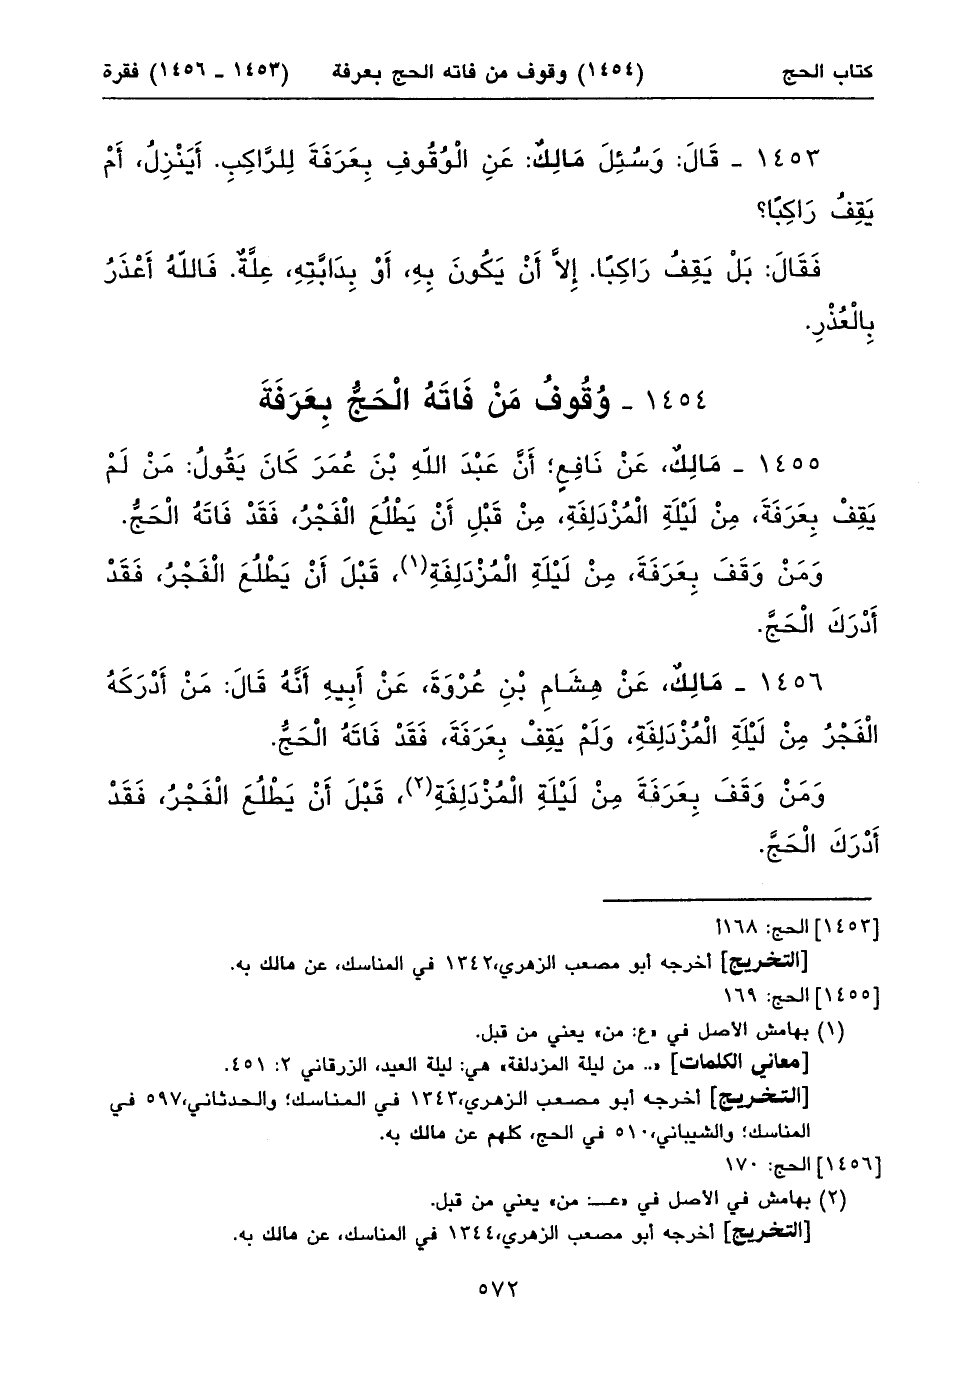 كتاب الحج (١٤٥٤) وقوف من فاته الحج بعرفة (١٤٥٣ ـ ١٤٥٦) فقرة
١٤٥٣ ـ قَالَ: وَسُئِلَ مَالِكٌ: عَنِ الْوُقُوفِ بِعَرَفَةَ لِلرَّاكِبِ. أَيَنْزِلُ، أَمْ
يَقِفُ رَاكِبًا؟
فَقَالَ: بَلْ يَقِفُ رَاكِبًا. إِلاَّ أَنْ يَكُونَ بِهِ، أَوْ بِدَابَّتِهِ، عِلَّةٌ. فَاللّهُ أَعْذَرُ
بِالْعُذْرِ.
١٤٥٤ ـ وُقُوفُ مَنْ فَاتَهُ الْحَجُّ بِعَرَفَةَ
١٤٥٥ ـ مَالِكٌ، عَنْ نَافِعٍ؛ أَنَّ عَبْدَ اللّهِ بْنَ عُمَرَ كَانَ يَقُولُ: مَنْ لَمْ
يَقِفْ بِعَرَفَةَ، مِنْ لَيْلَةِ الْمُزْدَلِفَةِ، مِنْ قَبْلِ أَنْ يَطْلُعَ الْفَجْرُ، فَقَدْ فَاتَهُ الْحَجُّ.
وَمَنْ وَقَفَ بِعَرَفَةَ، مِنْ لَيْلَةِ الْمُزْدَلِفَةِ(١)، قَبْلَ أَنْ يَطْلُعَ الْفَجْرُ، فَقَدْ
أَدْرَكَ الْحَجَّ.
١٤٥٦ ـ مَالِكٌ، عَنْ هِشَامِ بْنِ عُرْوَةَ، عَنْ أَبِيهِ أَنَّهُ قَالَ: مَنْ أَدْرَكَهُ
الْفَجْرُ مِنْ لَيْلَةِ الْمُزْدَلِفَةِ، وَلَمْ يَقِفْ بِعَرَفَةَ، فَقَدْ فَاتَهُ الْحَجُّ.
وَمَنْ وَقَفَ بِعَرَفَةَ مِنْ لَيْلَةِ الْمُزْدَلِفَةِ(٢)، قَبْلَ أَنْ يَطْلُعَ الْفَجْرُ، فَقَدْ
أَدْرَكَ الْحَجَّ.
[١٤٥٣] الحج: ١٦٨أ
[التخريج] أخرجه أبو مصعب الزهري، ١٣٤٢ في المناسك، عن مالك به.
[١٤٥٥] الحج: ١٦٩
(١) بهامش الأصل في «ع: من» يعني من قبل.
[معاني الكلمات] «.. من ليلة المزدلفة» هي: ليلة العيد، الزرقاني ٢: ٤٥١.
[التخريج] أخرجه أبو مصعب الزهري، ١٣٤٣ في المناسك؛ والحدثاني، ٥٩٧ في
المناسك؛ والشيباني، ٥١٠ في الحج، كلهم عن مالك به.
[١٤٥٦] الحج: ١٧٠
(٢) بهامش في الأصل في «عـ: من» يعني من قبل.
[التخريج] أخرجه أبو مصعب الزهري، ١٣٤٤ في المناسك، عن مالك به.
٥٧٢